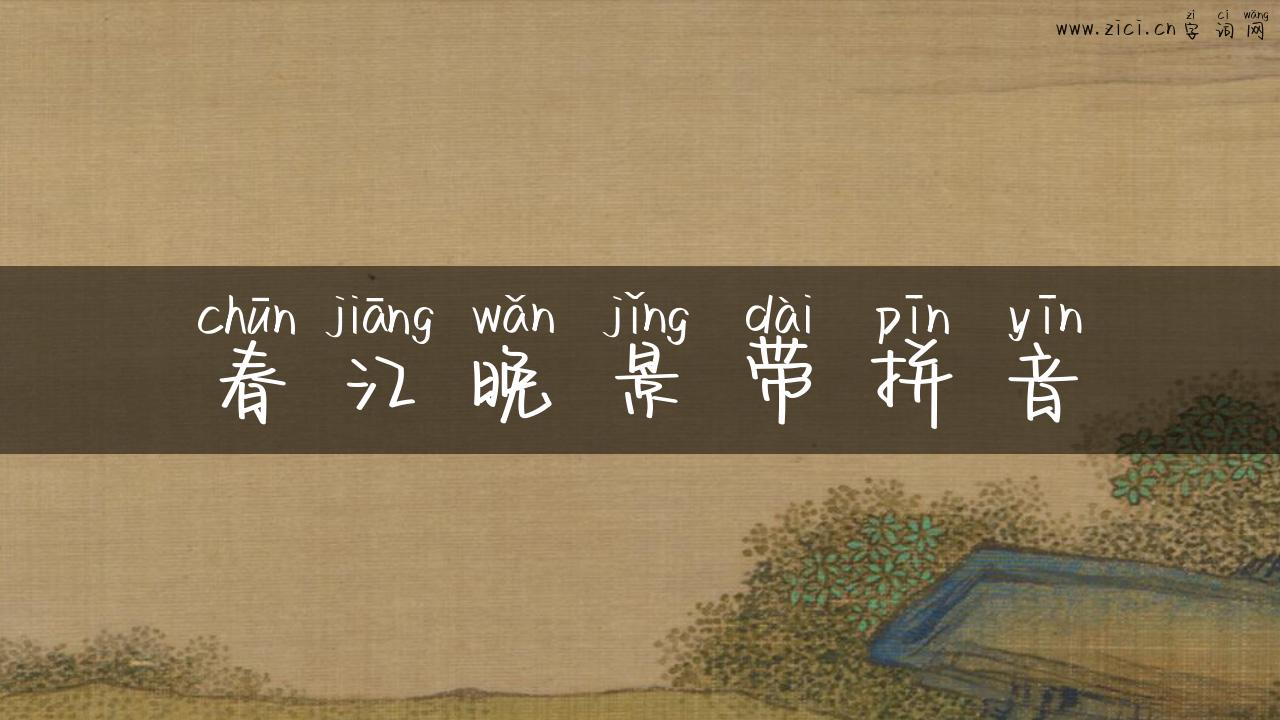 zì cí wǎng
www.zici.cn 字词网
chūn jiāng wǎn jǐng dài pīn yīn
春江晚景带拼音